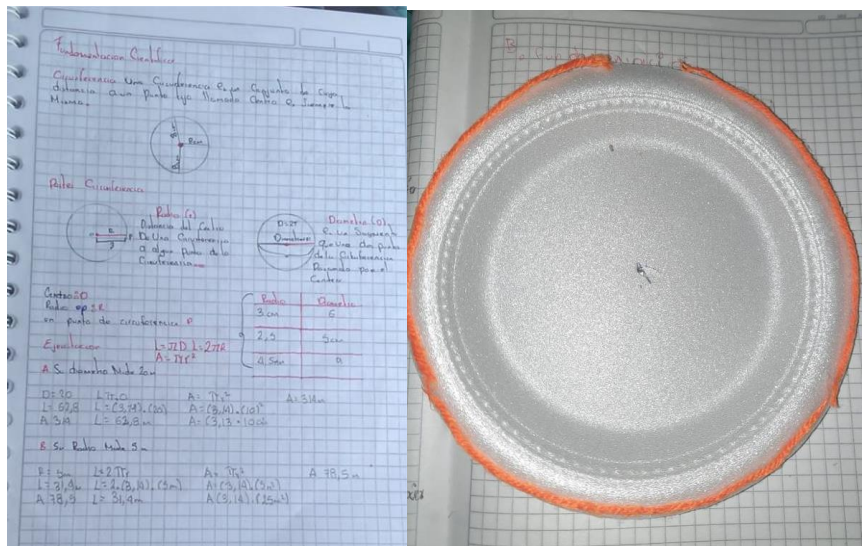 Fundamentacion Cientifica
Circunferencia Una Circunferencia Conjunto de
distancia a un punto fijo llamado Centro Siempre
Misma.
Partes Circunferencia
Radio (r)
Distancia del Centro
De Una Circunferencia
a algun punto de la
Circunferencia
Diametro (D)
D=2r
Diametro
Segmento
que Une dos puntos
de la
Pasando por el
Centro
Centro: O
Radio OP
un punto de circunferencia P
Radio Diametro
3 cm 6
2,5 5cm
4,5cm 9
Ejercitacion L=πD L=2πR
A=πr²
A. Su diametro Mide 20m
D=20 L=π.D A=πr² A=314m
L=62,8 L=(3,14).(20) A=(3,14).(10)²
A 314 L=62,8m A=(3,13.100
B. Su Radio Mide 5m
R=5m L=2πr A=πr² A 78,5m
L=31,4m L=2.(3,14).(5m) A=(3,14).(5m²)
A 78,5 L=31,4m A(3,14).(25m²)
B.